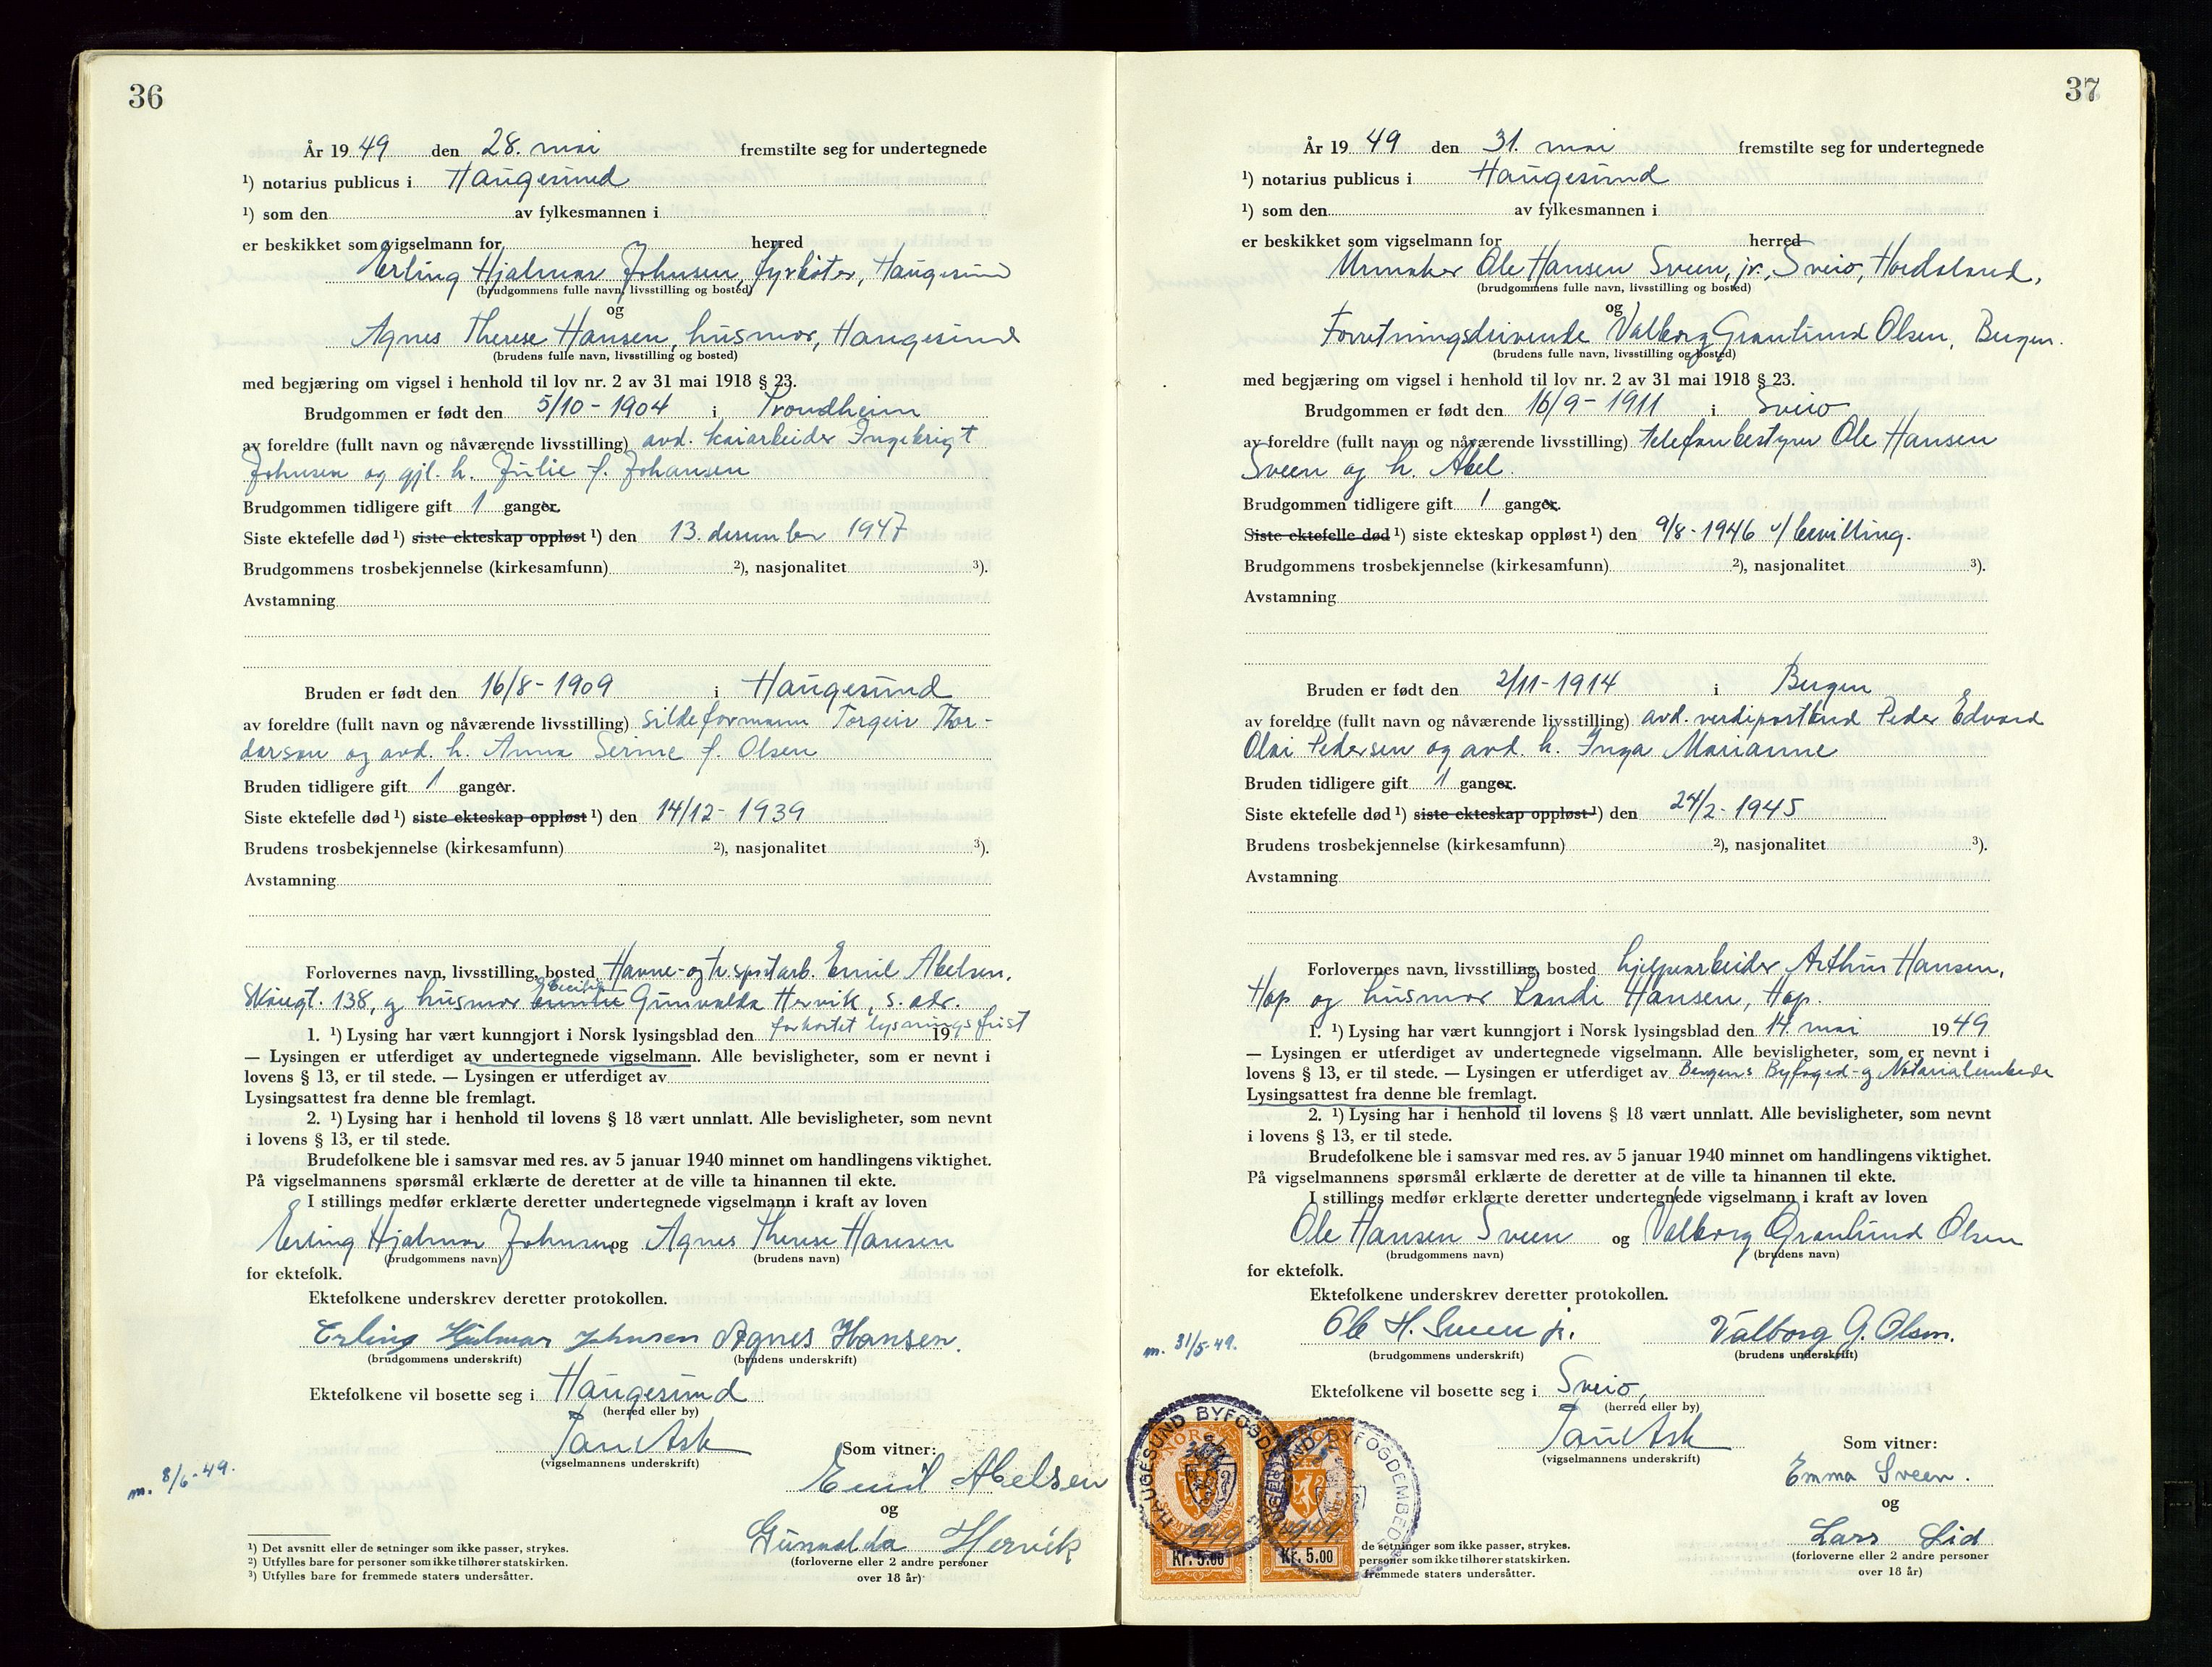 36
År 1949 den 28. mai fremstilte seg for undertegnede
¹) notarius publicus i Haugesund
¹) som den av fylkesmannen i
er beskikket som vigselmann for herred
Erling Hjalmar Johnsen, fyrbøter, Haugesund
(brudgommens fulle navn, livsstilling og bosted)
og
Agnes Therese Hansen, husmor, Haugesund
(brudens fulle navn, livsstilling og bosted)
med begjæring om vigsel i henhold til lov nr. 2 av 31 mai 1918 § 23.
Brudgommen er født den 5/10 - 1904 i Trondheim
av foreldre (fullt navn og nåværende livsstilling) avd. kaiarbeider Ingebrigt
Johnsen og gjl. h. Julie f. Johansen
Brudgommen tidligere gift 1 ganger.
Siste ektefelle død ¹) siste ekteskap oppløst ¹) den 13. desember 1947
Brudgommens trosbekjennelse (kirkesamfunn) ²), nasjonalitet ³).
Avstamning
Bruden er født den 16/8 - 1909 i Haugesund
av foreldre (fullt navn og nåværende livsstilling) sildeformann Torgeir Thor-
darson og avd. h. Anna Serine f. Olsen
Bruden tidligere gift 1 ganger.
Siste ektefelle død ¹) siste ekteskap oppløst ¹) den 14/12 - 1939
Brudens trosbekjennelse (kirkesamfunn) ²), nasjonalitet ³).
Avstamning
Forlovernes navn, livsstilling, bosted Havne- og tr.sportarb. Emil Abelsen,
Skaugt. 138, og husmor Gunvalda Hervik, s. adr.
1. ¹) Lysing har vært kunngjort i Norsk lysingsblad den forkortet lysningsfrist 19
— Lysingen er utferdiget av undertegnede vigselmann. Alle bevisligheter, som er nevnt i
lovens § 13, er til stede. — Lysingen er utferdiget av
Lysingsattest fra denne ble fremlagt.
2. ¹) Lysing har i henhold til lovens § 18 vært unnlatt. Alle bevisligheter, som nevnt
i lovens § 13, er til stede.
Brudefolkene ble i samsvar med res. av 5 januar 1940 minnet om handlingens viktighet.
På vigselmannens spørsmål erklærte de deretter at de ville ta hinannen til ekte.
I stillings medfør erklærte deretter undertegnede vigselmann i kraft av loven
Erling Hjalmar Johnsen og Agnes Therese Hansen
(brudgommens navn) (brudens navn)
for ektefolk.
Ektefolkene underskrev deretter protokollen.
Erling Hjalmar Johnsen Agnes Hansen.
(brudgommens underskrift) (brudens underskrift)
Ektefolkene vil bosette seg i Haugesund
(herred eller by)
Paul Ask
(vigselmannens underskrift)
Som vitner:
m. 8/6-49.
Emil Abelsen
og
Gunvalda Hervik
(forloverne eller 2 andre personer
over 18 år)
¹) Det avsnitt eller de setninger som ikke passer, strykes.
²) Utfylles bare for personer som ikke tilhører statskirken.
³) Utfylles bare for fremmede staters undersåtter.
37
År 1949 den 31. mai fremstilte seg for undertegnede
¹) notarius publicus i Haugesund
¹) som den av fylkesmannen i
er beskikket som vigselmann for herred
Urmaker Ole Hansen Sveen, jr., Sveio, Hordaland,
(brudgommens fulle navn, livsstilling og bosted)
og
Forretningsdrivende Valborg Granlund Olsen, Bergen.
(brudens fulle navn, livsstilling og bosted)
med begjæring om vigsel i henhold til lov nr. 2 av 31 mai 1918 § 23.
Brudgommen er født den 16/9 - 1911 i Sveio
av foreldre (fullt navn og nåværende livsstilling) telefonbestyrer Ole Hansen
Sveen og h. Abel.
Brudgommen tidligere gift 1 ganger.
Siste ektefelle død ¹) siste ekteskap oppløst ¹) den 9/8 - 1946 v/ bevilling.
Brudgommens trosbekjennelse (kirkesamfunn) ²), nasjonalitet ³).
Avstamning
Bruden er født den 2/11 - 1914 i Bergen
av foreldre (fullt navn og nåværende livsstilling) avd. verdipostbud Peder Edvard
Olai Pedersen og avd. h. Inga Marianne
Bruden tidligere gift 1 ganger.
Siste ektefelle død ¹) siste ekteskap oppløst ¹) den 24/2 - 1945
Brudens trosbekjennelse (kirkesamfunn) ²), nasjonalitet ³).
Avstamning
Forlovernes navn, livsstilling, bosted hjelpearbeider Arthur Hansen,
Hop og husmor Randi Hansen, Hop.
1. ¹) Lysing har vært kunngjort i Norsk lysingsblad den 14. mai 1949
— Lysingen er utferdiget av undertegnede vigselmann. Alle bevisligheter, som er nevnt i
lovens § 13, er til stede. — Lysingen er utferdiget av Bergens Byfoged- og Notarialembede
Lysingsattest fra denne ble fremlagt.
2. ¹) Lysing har i henhold til lovens § 18 vært unnlatt. Alle bevisligheter, som nevnt
i lovens § 13, er til stede.
Brudefolkene ble i samsvar med res. av 5 januar 1940 minnet om handlingens viktighet.
På vigselmannens spørsmål erklærte de deretter at de ville ta hinannen til ekte.
I stillings medfør erklærte deretter undertegnede vigselmann i kraft av loven
Ole Hansen Sveen og Valborg Granlund Olsen
(brudgommens navn) (brudens navn)
for ektefolk.
Ektefolkene underskrev deretter protokollen.
m. 31/5-49.
Ole H. Sveen jr. Valborg G. Olsen.
(brudgommens underskrift) (brudens underskrift)
Ektefolkene vil bosette seg i Sveio,
(herred eller by)
Paul Ask
(vigselmannens underskrift)
Som vitner:
Emma Sveen.
og
Lars Lid
(forloverne eller 2 andre personer
over 18 år)
HAUGESUND BYFOGDEMBEDE
NORGE
1949 1949
Kr. 5.00 Kr. 5.00
de setninger som ikke passer, strykes.
personer som ikke tilhører statskirken.
fremmede staters undersåtter.